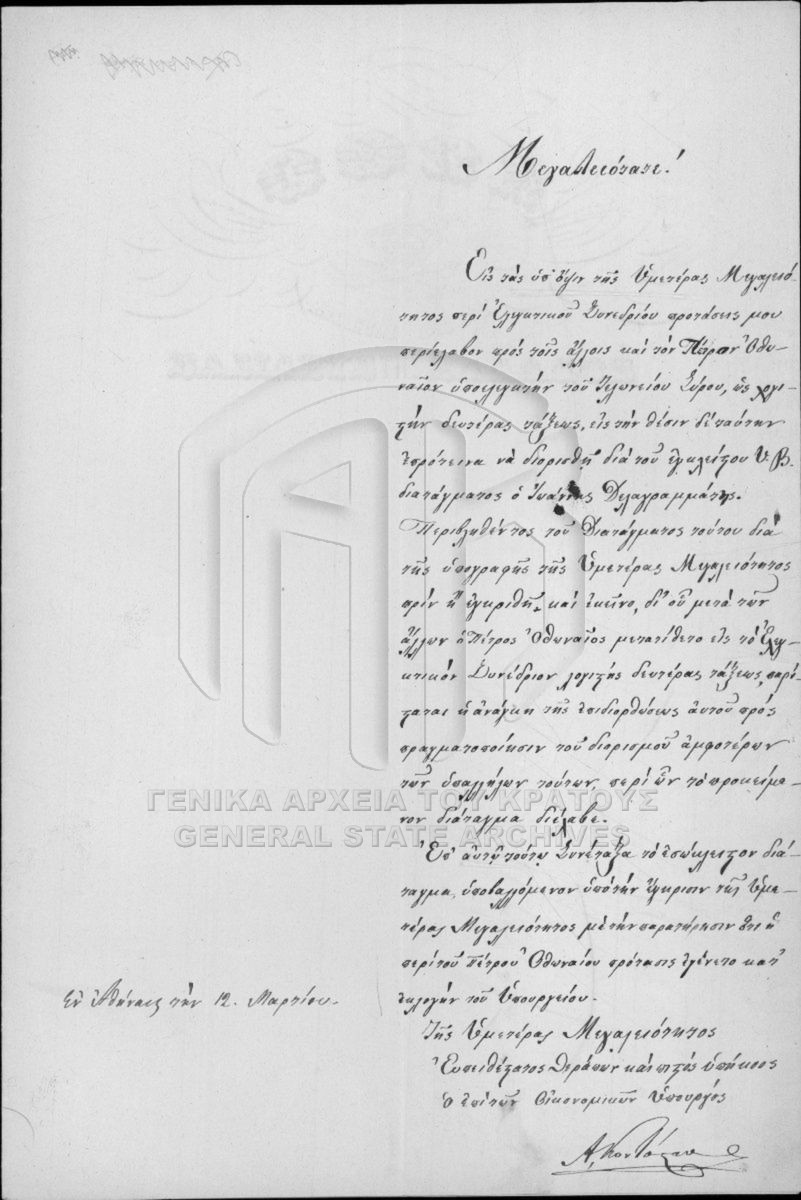 Μεγαλειότατε!
Εἰς τὰς ὑπ' ὄψιν τῆς Ὑμετέρας Μεγαλειό-
τητος περὶ Ἐλεγκτικοῦ Συνεδρίου προτάσεις μου
περιέλαβον πρὸς τοῖς ἄλλοις καὶ τὸν Πέτρον Ὀθω-
ναῖον ὑποελεγκτὴν τοῦ Τελωνείου Σύρου, ὡς λογι-
στὴν δευτέρας τάξεως, εἰς τὴν θέσιν δὲ ταύτην
ἐπρότεινα νὰ διορισθῇ διὰ τοῦ ἐγκλείστου Υ. Β.
διατάγματος ὁ Ἰωάννης Δελαγραμμάτης.
Περιβληθέντος τοῦ Διατάγματος τούτου διὰ
τῆς ὑπογραφῆς τῆς Ὑμετέρας Μεγαλειότητος
πρὶν ἢ ἐγκριθῇ καὶ ἐκεῖνο, δι' οὗ μετὰ τῶν
ἄλλων ὁ Πέτρος Ὀθωναῖος μετατίθετο εἰς τὸ Ἐλεγ-
κτικὸν Συνέδριον λογιστὴς δευτέρας τάξεως, παρί-
σταται ἡ ἀνάγκη τῆς ἐπιδιορθώσεως αὐτοῦ πρὸς
πραγματοποίησιν τοῦ διορισμοῦ ἀμφοτέρων
τῶν ὑπαλλήλων τούτων, περὶ ὧν τὸ προκείμε-
νον διάταγμα διέλαβε.
Ἐπ' αὐτῷ τούτῳ συνέταξα τὸ ἐσώκλειστον διά-
ταγμα, ὑποβαλλόμενον ὑπὸ τὴν ἔγκρισιν τῆς Ὑμε-
τέρας Μεγαλειότητος μὲ τὴν παρατήρησιν ὅτι ἡ
περὶ τοῦ Πέτρου Ὀθωναίου πρότασις ἐγένετο κατ'
ἐκλογὴν τοῦ Ὑπουργείου.
Ἐν Ἀθήναις τὴν 12. Μαρτίου.
Τῆς Ὑμετέρας Μεγαλειότητος
Εὐπειθέστατος θεράπων καὶ πιστὸς ὑπήκοος
Ὁ ἐπὶ τῶν Οἰκονομικῶν Ὑπουργός
ΓΕΝΙΚΑ ΑΡΧΕΙΑ ΤΟΥ ΚΡΑΤΟΥΣ
GENERAL STATE ARCHIVES